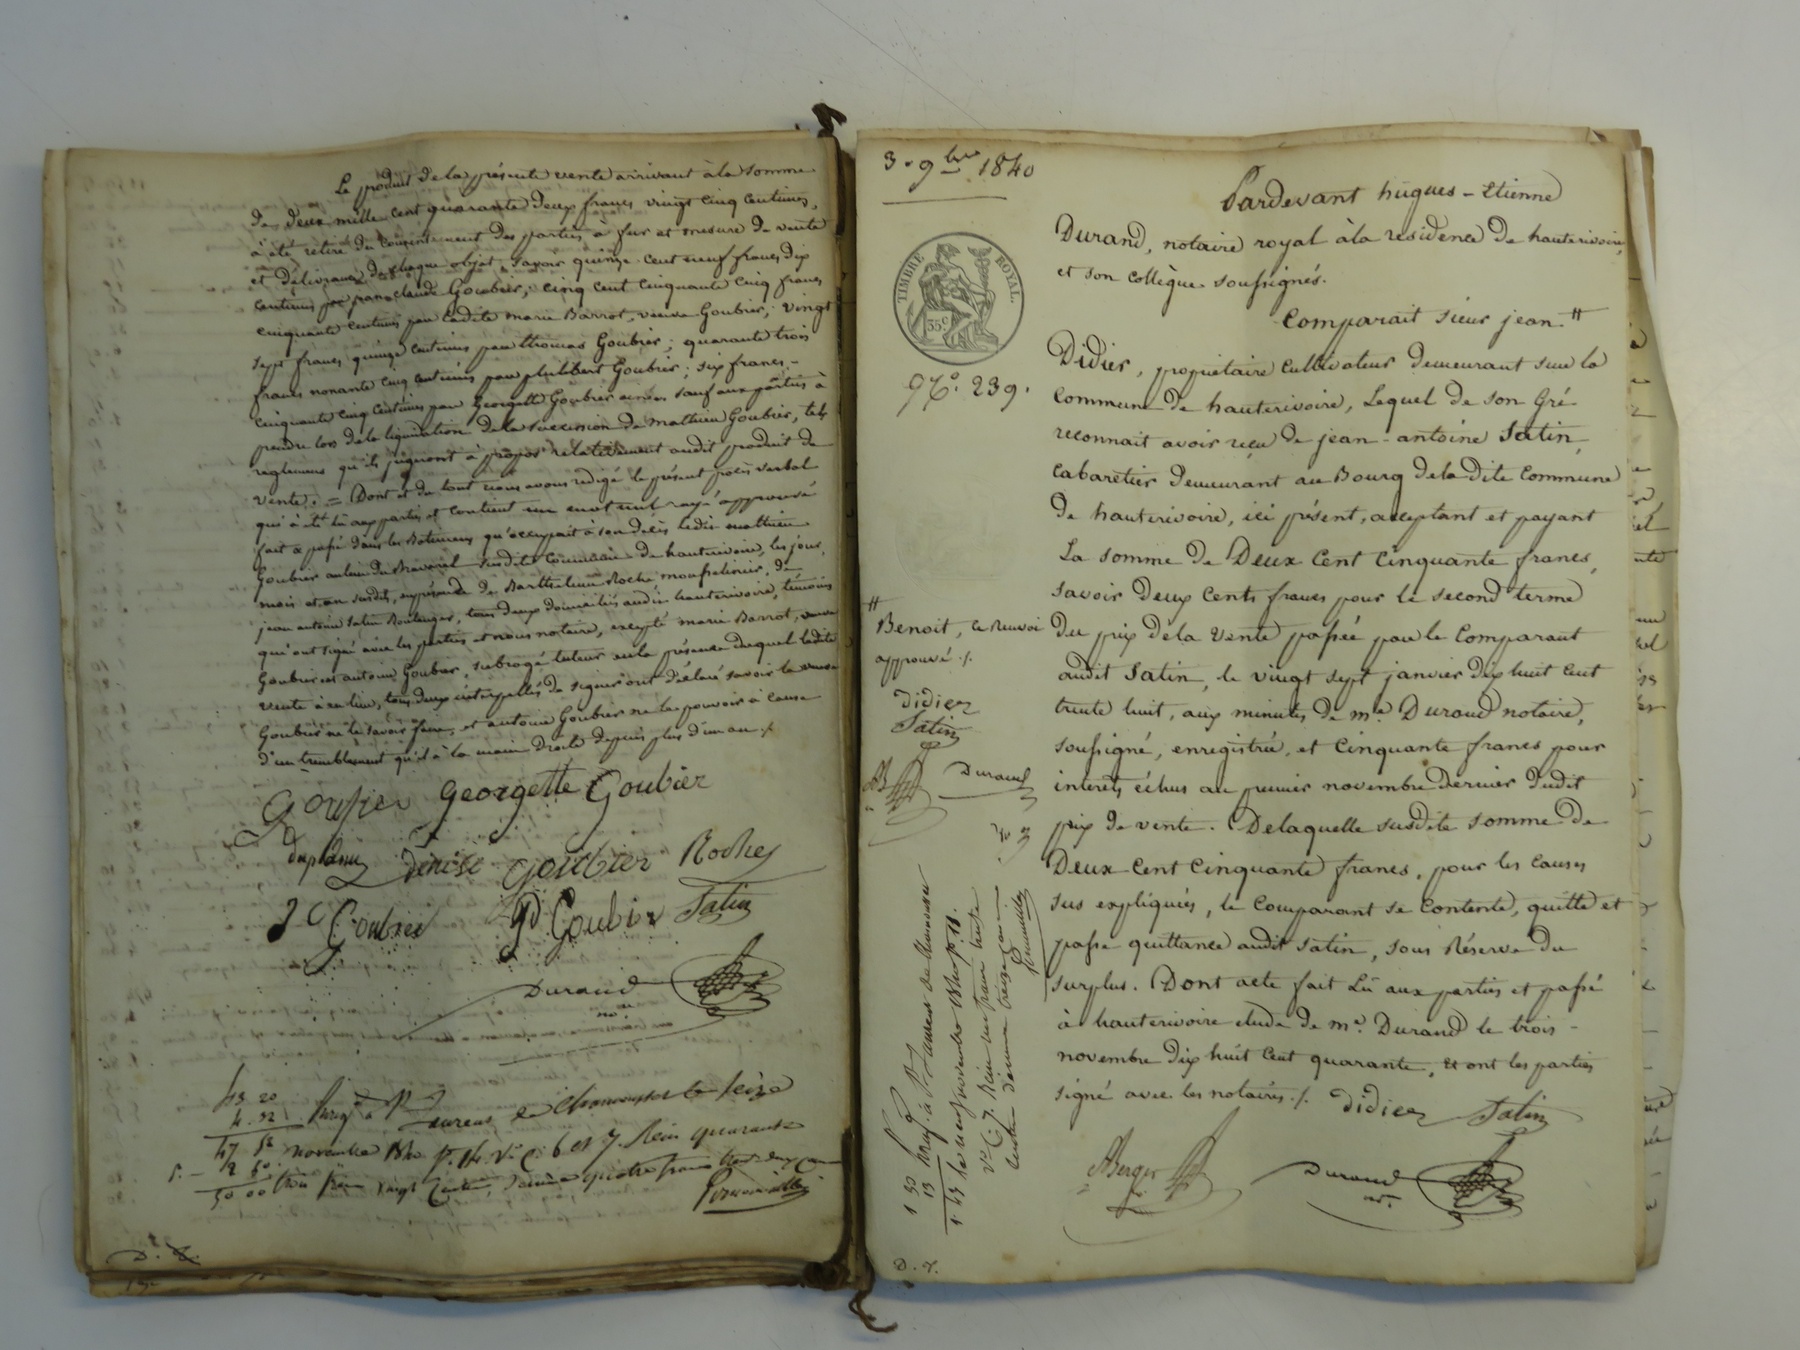 Le produit de la présente vente arrivant à la somme
de deux mille cent quarante deux francs vingt cinq centimes,
à été retiré du consentement des parties à fur et mesure de vente
et délivrance de chaque objet, savoir quinze cent neuf francs dix
centimes par jean claude Goubier; cinq cent cinquante cinq francs
cinquante centimes par Cadete marie Barrot, veuve Goubier; vingt
sept francs quinze centimes par thomas Goubier; quarante trois
francs nonante cinq centimes par philibert Goubier; six francs -
cinquante cinq centimes par Georgette Goubier sauf aux parties à
prendre lors de la liquidation de la succession de mathieu Goubier, tels
reglemens qu'ils jugeront à propos relativement audit produit de
vente. = Dont et du tout nous avons redigé le présent procès verbal
qui à été lu aux parties et contient un mot nul rayé approuvé
fait & passé dans les Batimens qu'occupait à son décès ledit mathieu
Goubier au lieu du susdite Commune de hauterivoire, les jour,
mois et an susdits, en présence de Barthelemi Roche, mousselinier, &
jean antoine Satin Boulanger, tous deux domiciliés audit hauterivoire, témoins
qui ont signé avec les parties et nous notaire, excepté marie Barrot, veuve
Goubier et antoine Goubier, subrogé tuteur en la présence duquel ladite
vente à eu lieu, tous deux interpellés de signer ont déclaré savoir la veuve
Goubier ne le savoir faire, et antoine Goubier ne le pouvoir à cause
d'un tremblement qu'il à à la main droite depuis plus d'un an ./.
Goubier Georgette Goubier
Denise Goubier Roche
J C Goubier Pt Goubier Satin
Durand
nre
43 20
4 32
47 52
2 50
50 00
Enregé à St Laurent de Chamousset le seize
novembre 1840 f° 14 v° C. 6 et 7. Reçu quarante
trois francs vingt Centimes, décime quatre francs trente deux Cmes
D. D.
3. 9bre 1840
TIMBRE ROYAL.
35c
N°. 239.
Pardevant hugues - Etienne
Durand, notaire royal à la residence de hauterivoire,
et son collègue soussignés.
Comparait sieur jean #
Didier, propriétaire Cultivateur demeurant sur la
Commune de hauterivoire, Lequel de son Gré
reconnait avoir reçu de jean - antoine Satin,
Cabaretier demeurant au Bourg de la dite Commune
de hauterivoire, ici présent, acceptant et payant
La somme de Deux Cent Cinquante francs,
savoir deux Cents francs pour le second terme
du prix de la vente passée par le Comparant
audit Satin, le vingt sept janvier dix huit cent
trente huit, aux minutes de me. Durand notaire,
soussigné, enregistrée, et Cinquante francs pour
interets échus au premier novembre dernier dudit
prix de vente. Delaquelle susdite somme de
Deux Cent Cinquante francs, pour les causes
sus expliquées, le Comparant se Contente, quitte et
passe quittance audit Satin, sous Réserve du
surplus. Dont acte fait Lû aux parties et passé
à hauterivoire etude de me. Durand le trois -
novembre dix huit Cent quarante, et ont les parties
signé avec les notaires ./. Didier Satin
ABerger Durand
nre.
#
Benoit, ce Renvoi
approuvé ./.
Didier
Satin
AB Durand
nre
1 30
13
1 43
Enregé à St Laurent de Chamousset
le neuf novembre 1840 f° 11.
v° C. 7. Reçu un franc trente
centimes décime treize centimes
D. D.